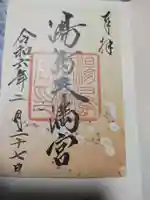 奉拝
湯島天満宮
令和六年二月二十七日